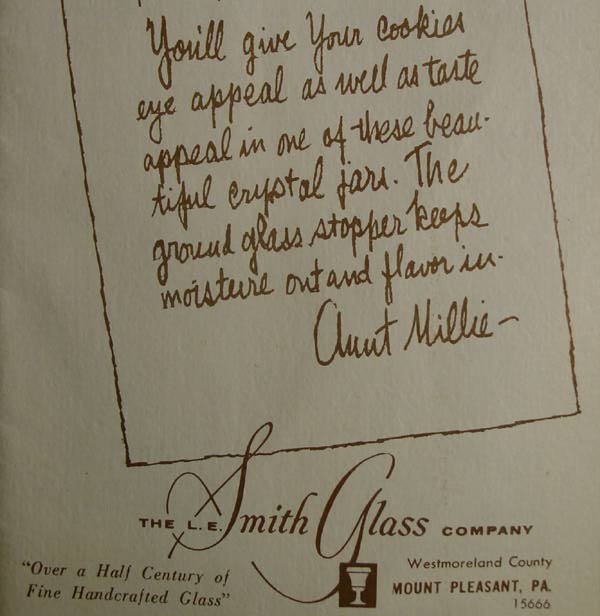 You'll give Your cookies
eye appeal as well as taste
appeal in one of these beau-
tiful crystal jars. The
ground glass stopper keeps
moisture out and flavor in.
Aunt Millie—
THE L. E. Smith Glass COMPANY
"Over a Half Century of
Fine Handcrafted Glass"
Westmoreland County
MOUNT PLEASANT, PA.
15666